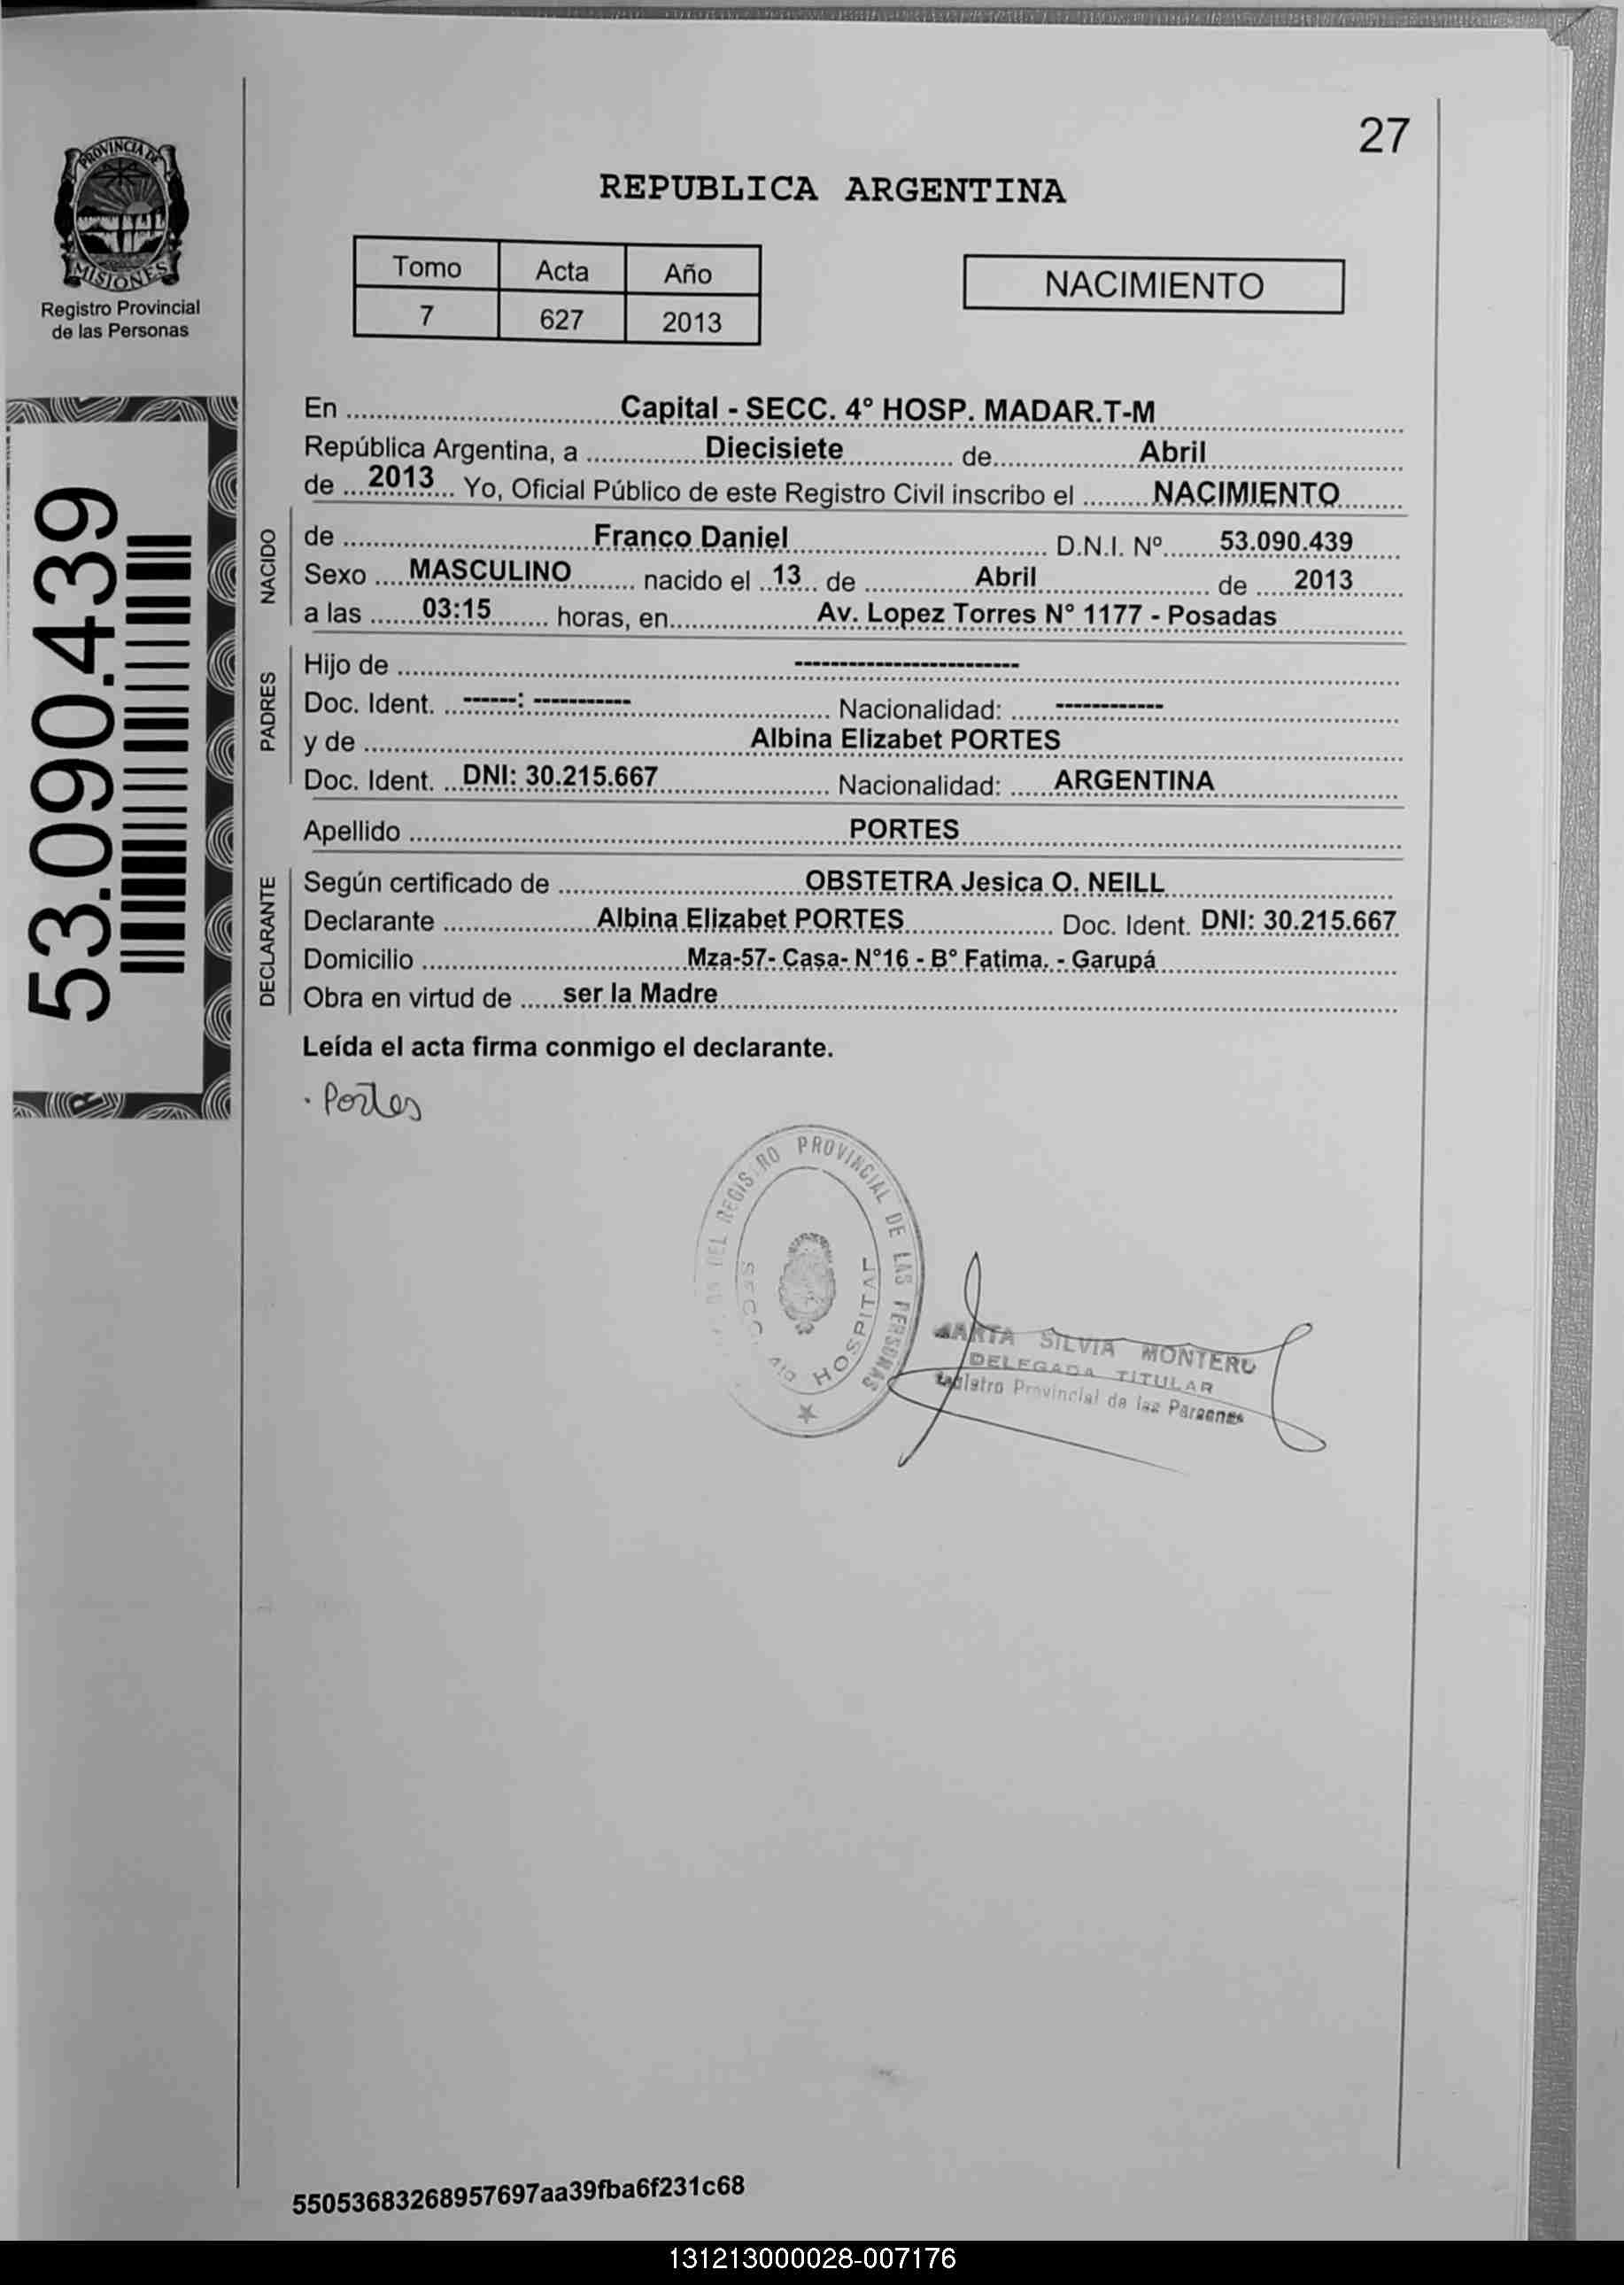 27
PROVINCIA DE
MISIONES
Registro Provincial
de las Personas
REPUBLICA ARGENTINA
Tomo Acta Año
7 627 2013
NACIMIENTO
53.090.439
En Capital - SECC. 4° HOSP. MADAR.T-M
República Argentina, a Diecisiete de Abril
de 2013 Yo, Oficial Público de este Registro Civil inscribo el NACIMIENTO
NACIDO
de Franco Daniel D.N.I. Nº 53.090.439
Sexo MASCULINO nacido el 13 de Abril de 2013
a las 03:15 horas, en Av. Lopez Torres N° 1177 - Posadas
PADRES
Hijo de -------------------------
Doc. Ident. ------: ----------- Nacionalidad: ------------
y de Albina Elizabet PORTES
Doc. Ident. DNI: 30.215.667 Nacionalidad: ARGENTINA
Apellido PORTES
DECLARANTE
Según certificado de OBSTETRA Jesica O. NEILL
Declarante Albina Elizabet PORTES Doc. Ident. DNI: 30.215.667
Domicilio Mza-57- Casa- N°16 - B° Fatima. - Garupá
Obra en virtud de ser la Madre
Leída el acta firma conmigo el declarante.
Portes
DEL REGISTRO PROVINCIAL DE LAS PERSONAS
SECC. 4ta HOSPITAL
MARTA SILVIA MONTERO
DELEGADA TITULAR
Registro Provincial de las Personas
55053683268957697aa39fba6f231c68
131213000028-007176